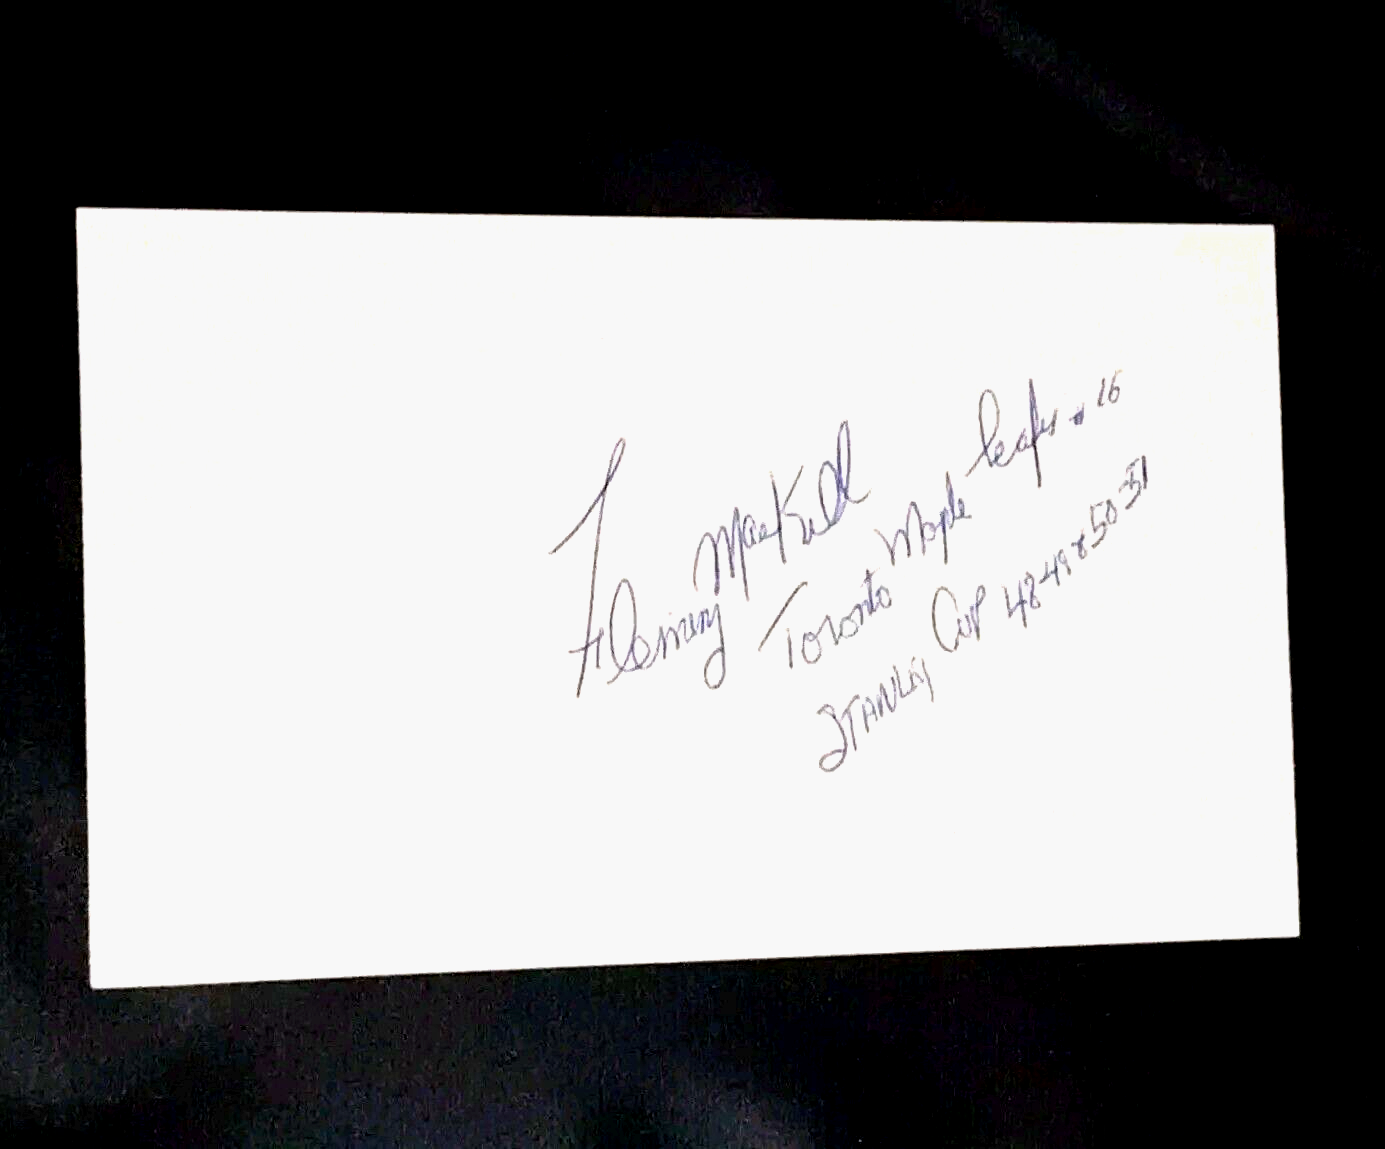 Fleming MacKell
Toronto Maple Leafs # 16
STANLEY CUP 48-49 & 50-51